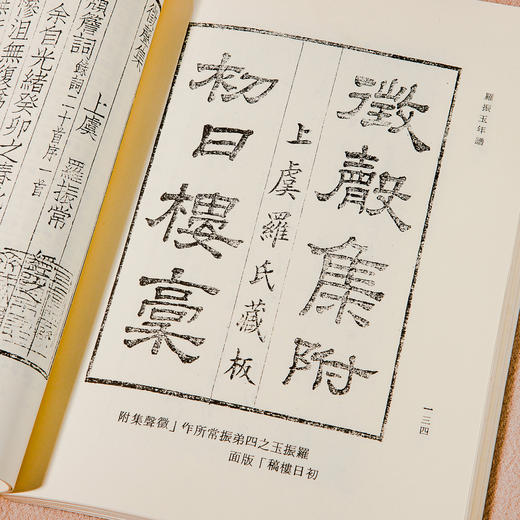 羅振玉年譜
一三四
徵聲集附
上虞羅氏藏板
初日樓稾
羅振玉之四弟振常所作「徵聲集附
初日樓稿」版面
聲集
詞 錄詞二十首序一首
上虞 羅振常
余自光緒癸卯之春
沮無復